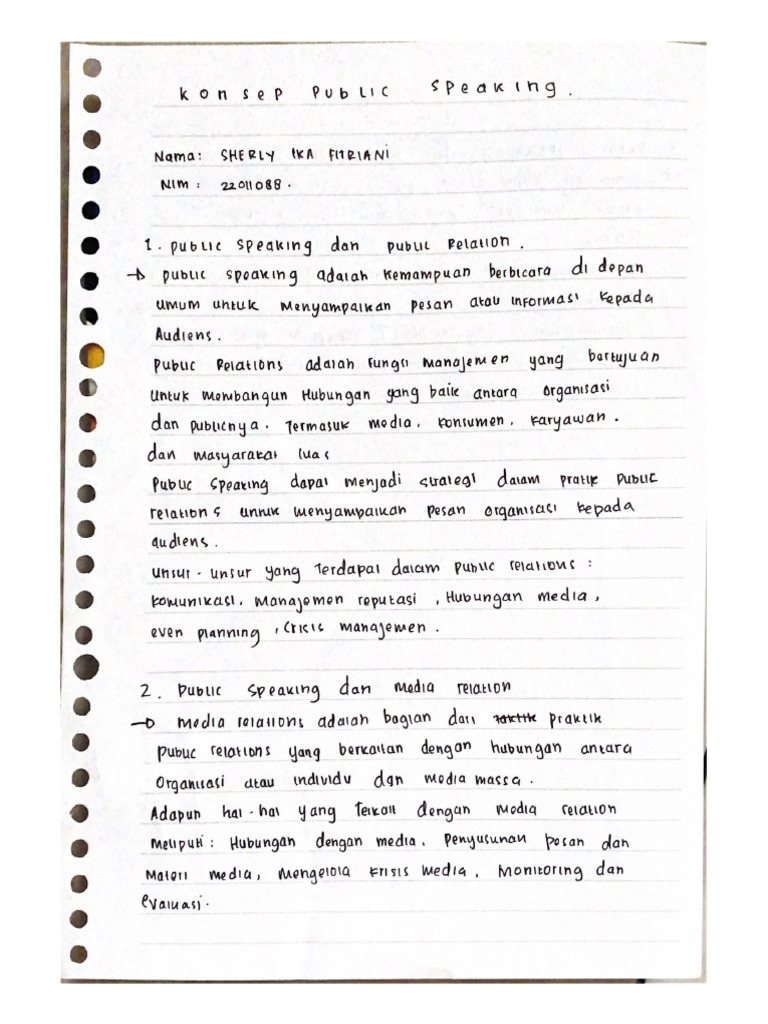 Konsep Public Speaking.
Nama: SHERLY IKA FITRIANI
NIM: 22011088.
1. Public Speaking dan Public Relation.
→ Public speaking adalah kemampuan berbicara di depan
umum untuk menyampaikan pesan atau informasi kepada
Audiens.
Public Relations adalah fungsi manajemen yang bertujuan
untuk membangun Hubungan yang baik antara organisasi
dan publicnya. Termasuk media, konsumen, karyawan.
dan masyarakat luas
Public Speaking dapat menjadi strategi dalam pratik public
relations untuk menyampaikan pesan organisasi kepada
audiens.
unsur-unsur yang terdapat dalam public relations:
komunikasi, manajemen reputasi, Hubungan media,
even planning, crisis manajemen.
2. Public Speaking dan media relation
→ Media relations adalah bagian dari praktik
public relations yang berkaitan dengan hubungan antara
organisasi atau individu dan media massa.
Adapun hal-hal yang terkait dengan media relation
meliputi: Hubungan dengan media, Penyusunan pesan dan
materi media, mengelola krisis media, Monitoring dan
evaluasi.